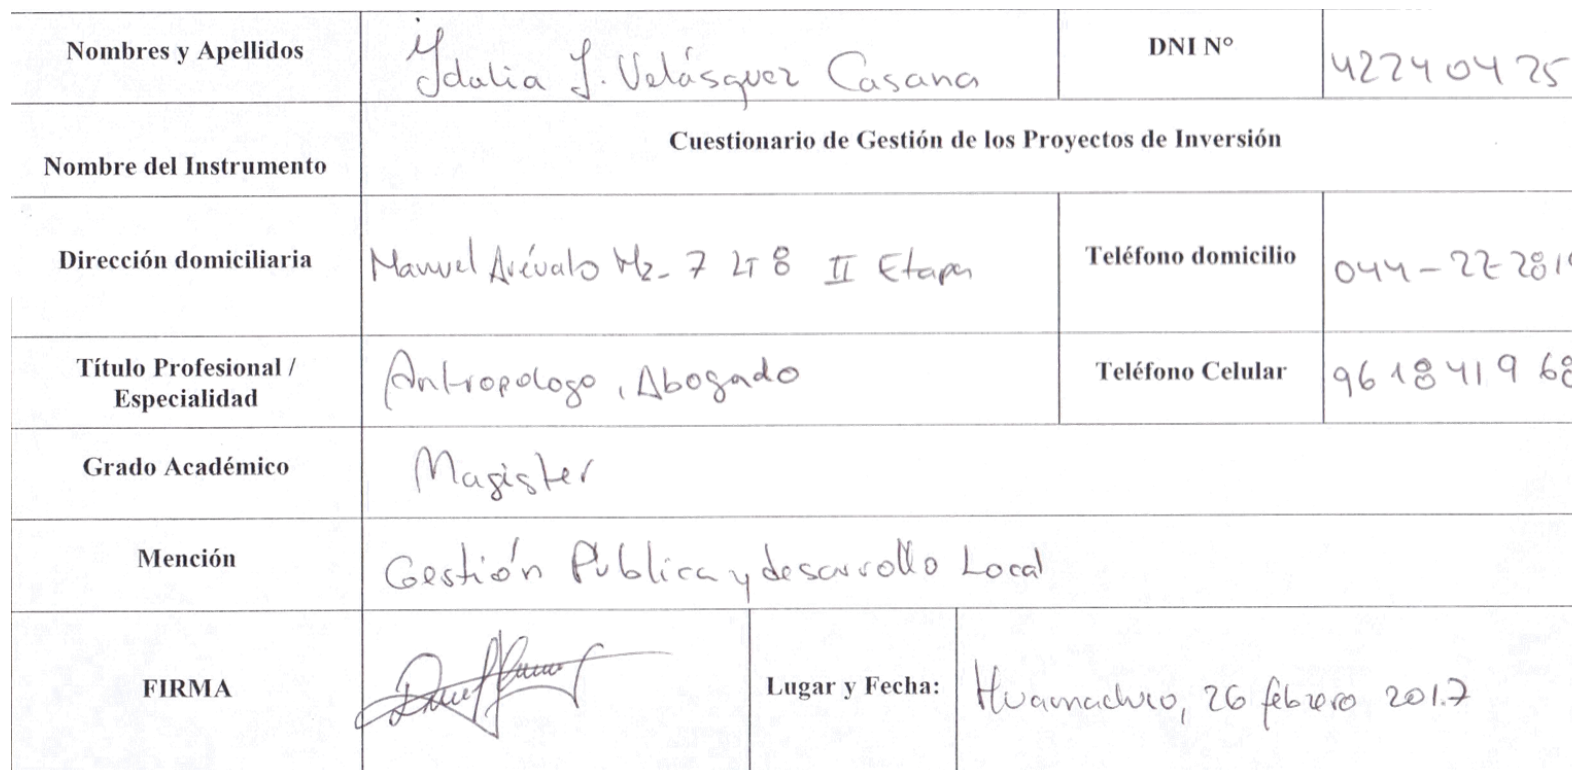 Nombres y Apellidos
Idalia J. Velásquez Casana
DNI N°
42240425
Nombre del Instrumento
Cuestionario de Gestión de los Proyectos de Inversión
Dirección domiciliaria
Manuel Arévalo Mz- 7 LT 8 II Etapa
Teléfono domicilio
044-
Título Profesional /
Especialidad
Antropologo, Abogado
Teléfono Celular
961841968
Grado Académico
Magister
Mención
Gestión Pública y desarrollo Local
FIRMA
Lugar y Fecha:
Huamachuco, 26 febrero 2017